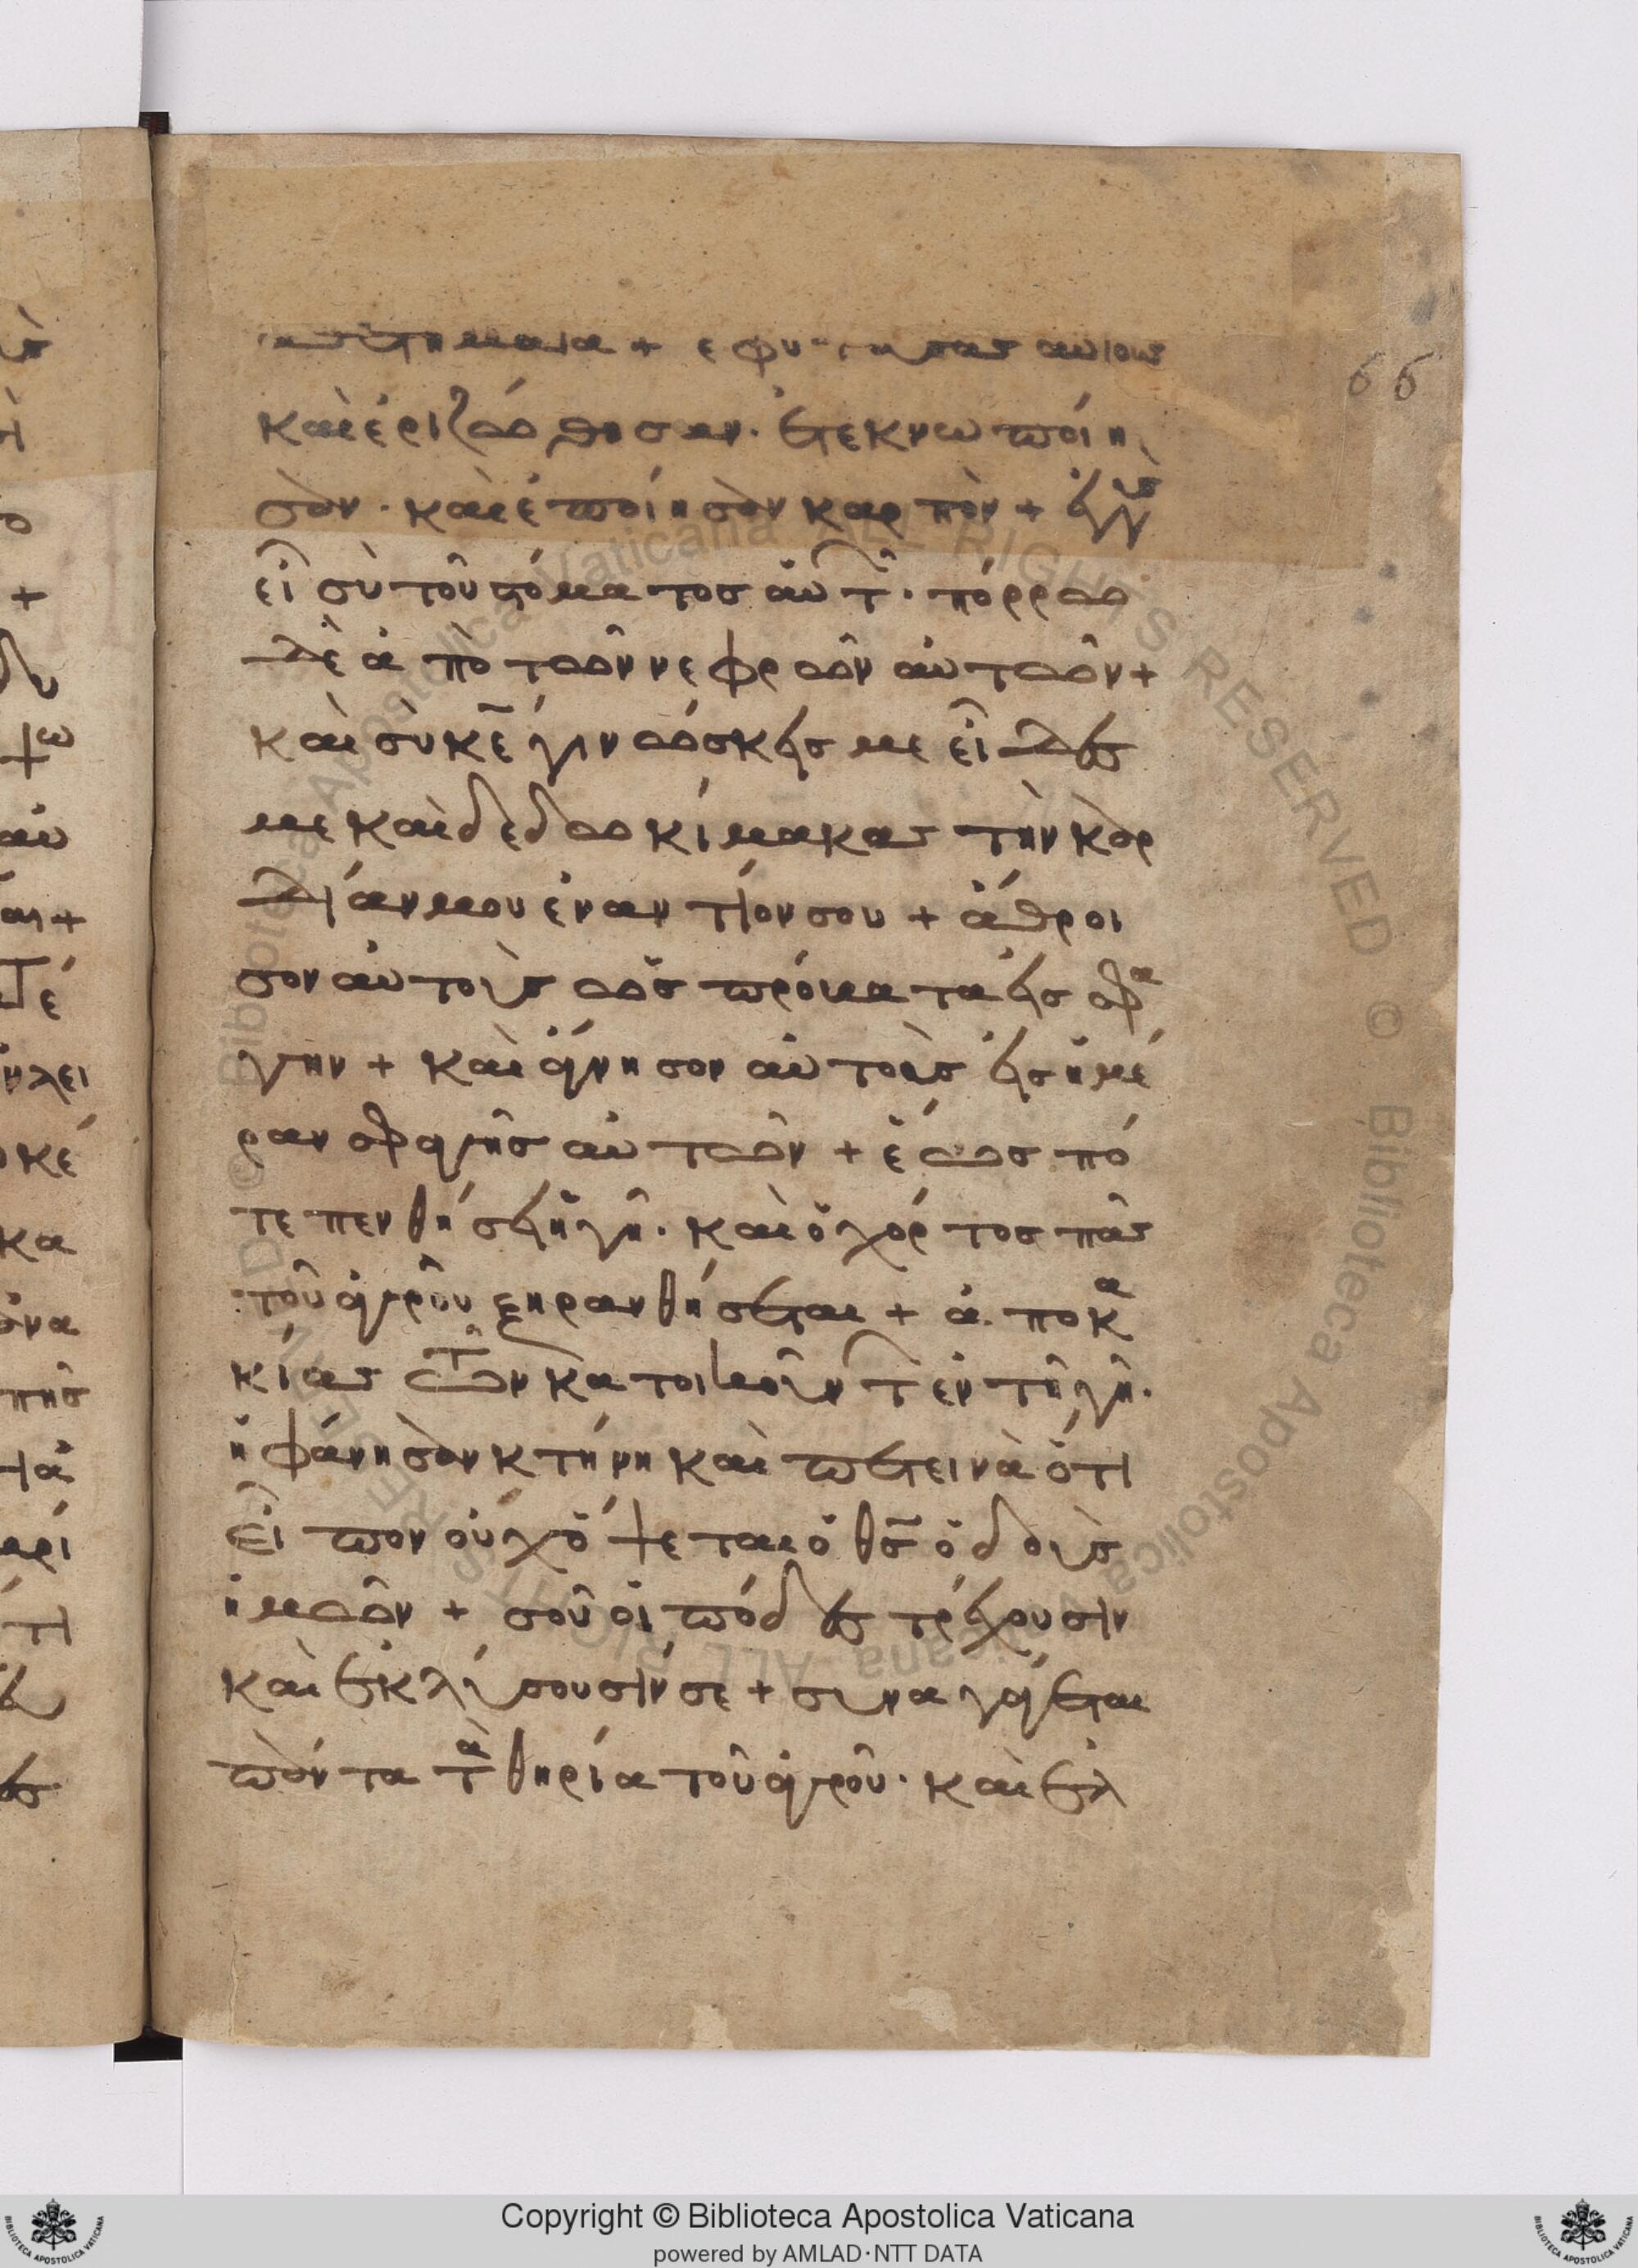 ἀθετήματα + ἐφύτευσας αὐτοὺς
καὶ ἐριζώθησαν· ἐτεκνωποίη
σαν· καὶ ἐποίησαν καρπὸν + ἐγγὺς
εἶ σὺ τοῦ στόματος αὐτ· πόρρω
δὲ ἀπὸ τῶν νεφρῶν αὐτῶν +
καὶ σὺ κε̄ γινώσκεις με εἶδες
με καὶ δεδωκίμακας τὴν καρ
δίαν μου ἐναντίον σου + ἄθροι
σον αὐτοὺς ὡς πρόβατα εἰς σφα
γην + καὶ ἅγνησον αὐτοὺς εἰς ἡμέ
ραν σφαγῆς αὐτῶν + ἕως πό
τε πενθήσει ἡ γῆ· καὶ ὁ χόρτος πᾶς
τοῦ ἀγροῦ ξηρανθήσεται + ἀπο κα
κίας τῶν κατοικούντ ἐν τῆ γῆ·
ἠφάνησαν κτήνη καὶ πετεινὰ ὅτι
εἶπον οὐχ ὄψεται ὁ θς̄ ὁδοὺς
ἡμῶν + σοῦ οἱ πόδες τρέχουσιν
καὶ ἐκλύσουσίν σε + συναγάγεται
πάντα τὰ θηρία τοῦ ἀγροῦ· καὶ ἐλ
66
Copyright © Biblioteca Apostolica Vaticana
powered by AMLAD·NTT DATA